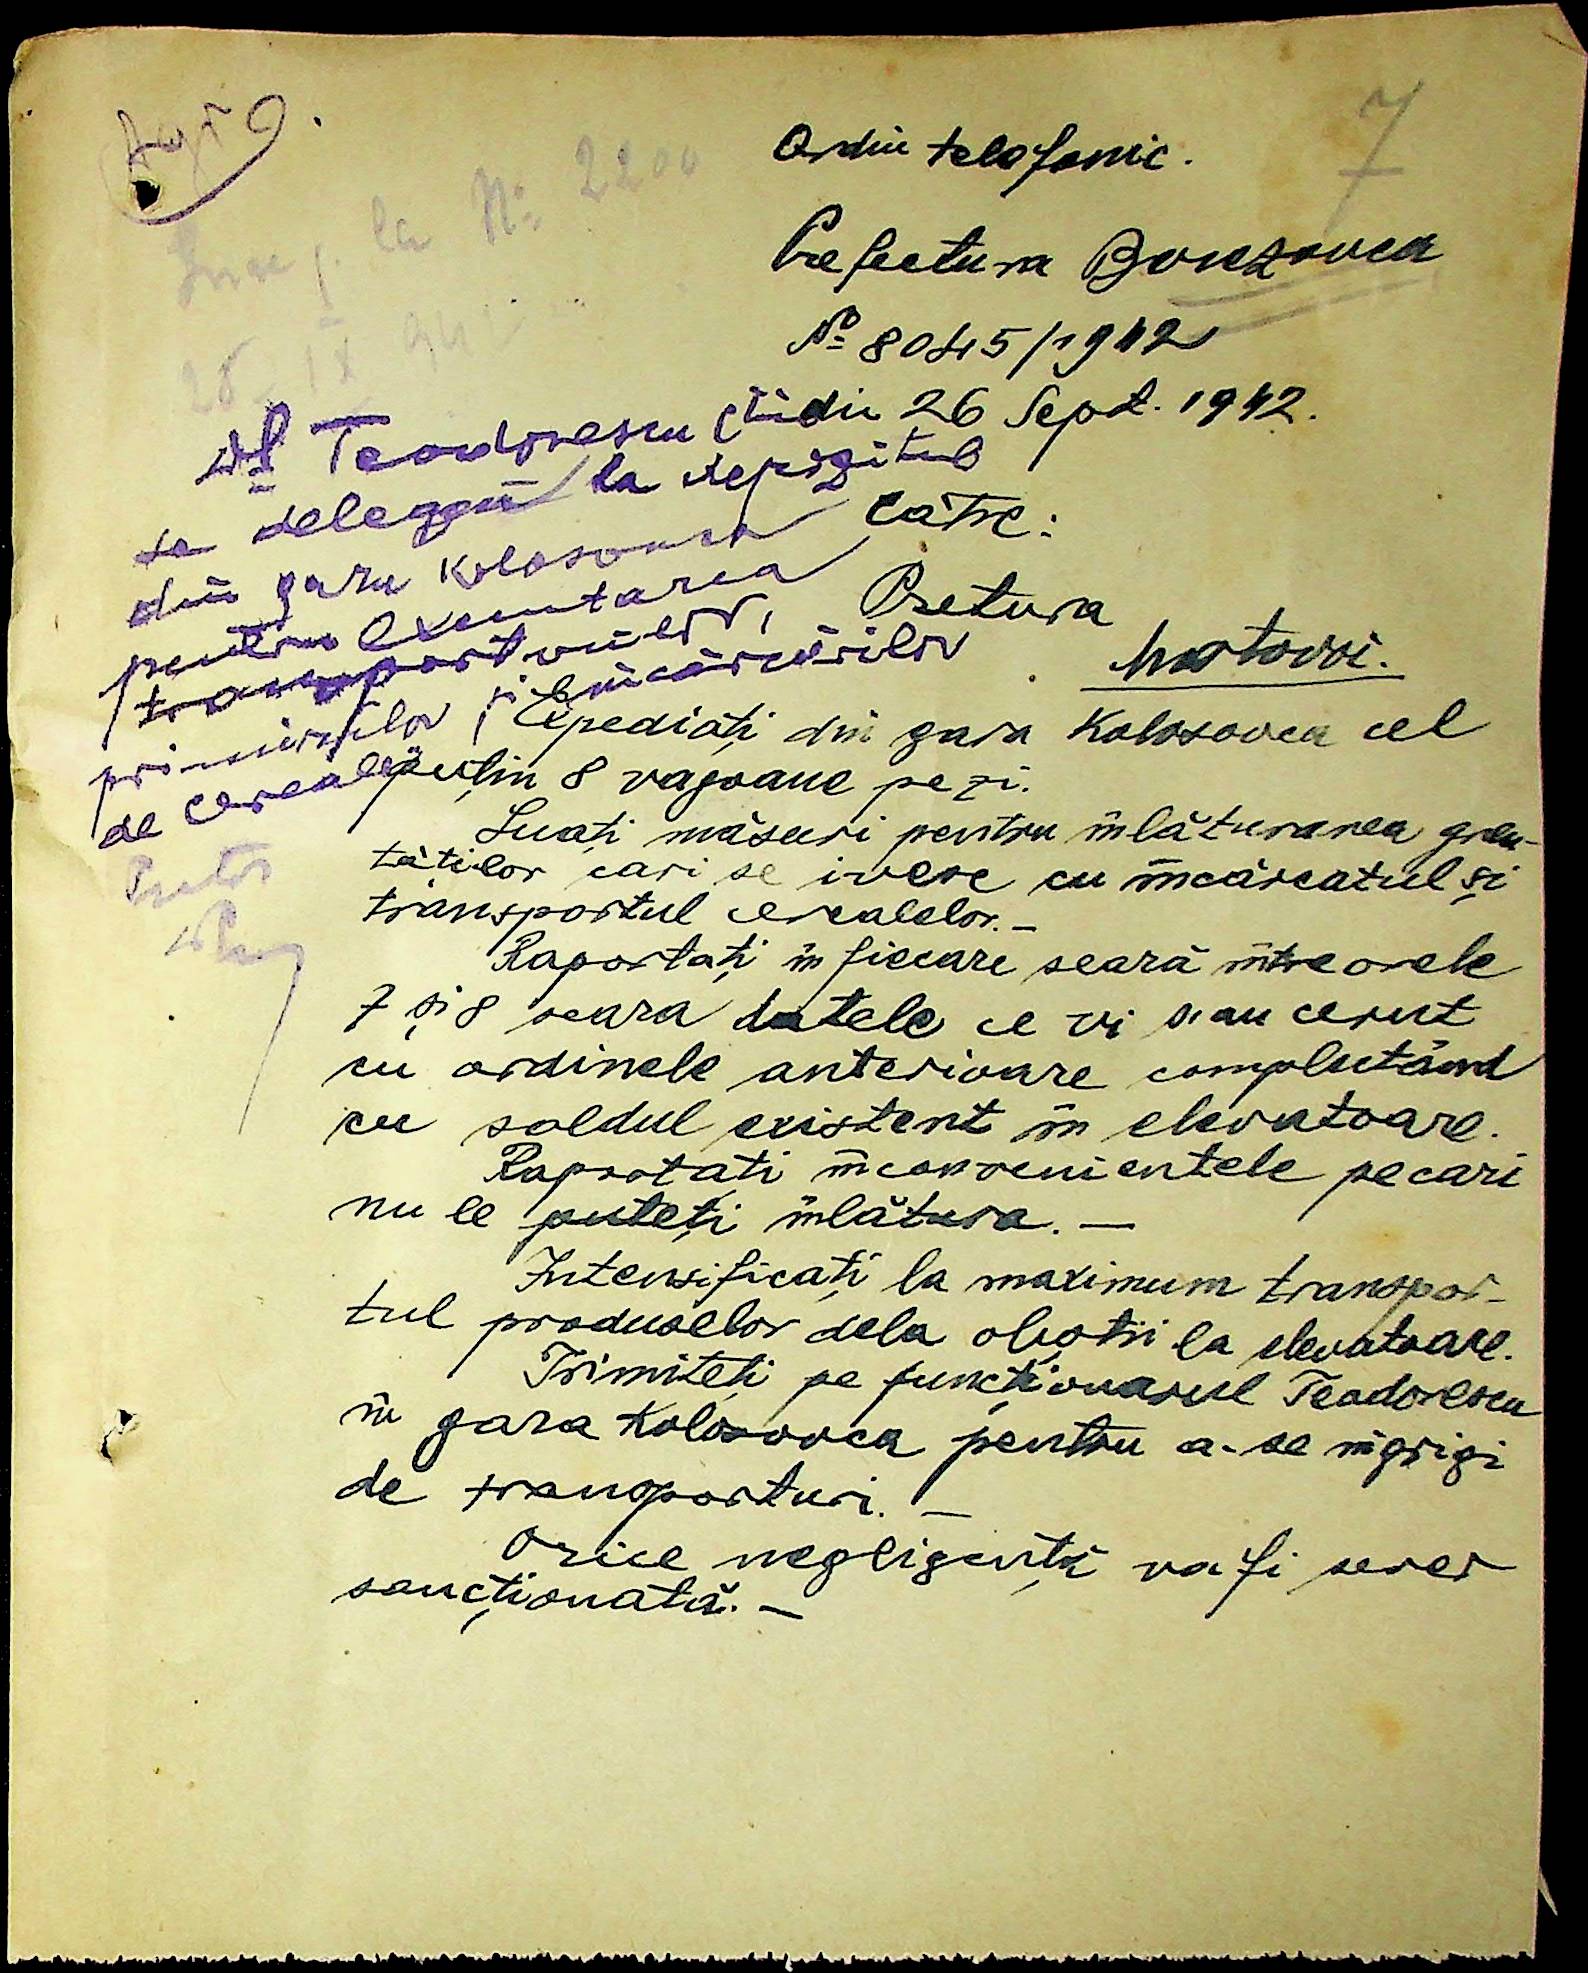 7
Ordin telefonic.
Prefectura Berezovca
№ 8045/1942
din 26 Sept. 1942.
către:
Pretura
Mostovoi.
Expediați din gara Kolosovca cel
puțin 8 vagoane pe zi.
Luați măsuri pentru înlăturarea greu-
tăților cari se ivesc cu încărcatul și
transportul cerealelor. –
Raportați în fiecare seară între orele
7 și 8 seara datele ce vi s'au cerut
cu ordinele anterioare complectând
cu soldul existent în elevatoare.
Raportați inconvenientele pe cari
nu le puteți înlătura. –
Intensificați la maximum transpor-
tul produselor dela obștii la elevatoare.
Trimiteți pe funcționarul Teodorescu
în gara Kolosovca pentru a-se îngriji
de transporturi. –
Orice neglijență va fi sever
sancționată. –
la № 2200
28 IX
Dl Teodorescu
se delegă la depozitul
din gara Kolosovca
pentru executarea
transporturilor,
primirilor și încărcărilor
de cereale
Pretor